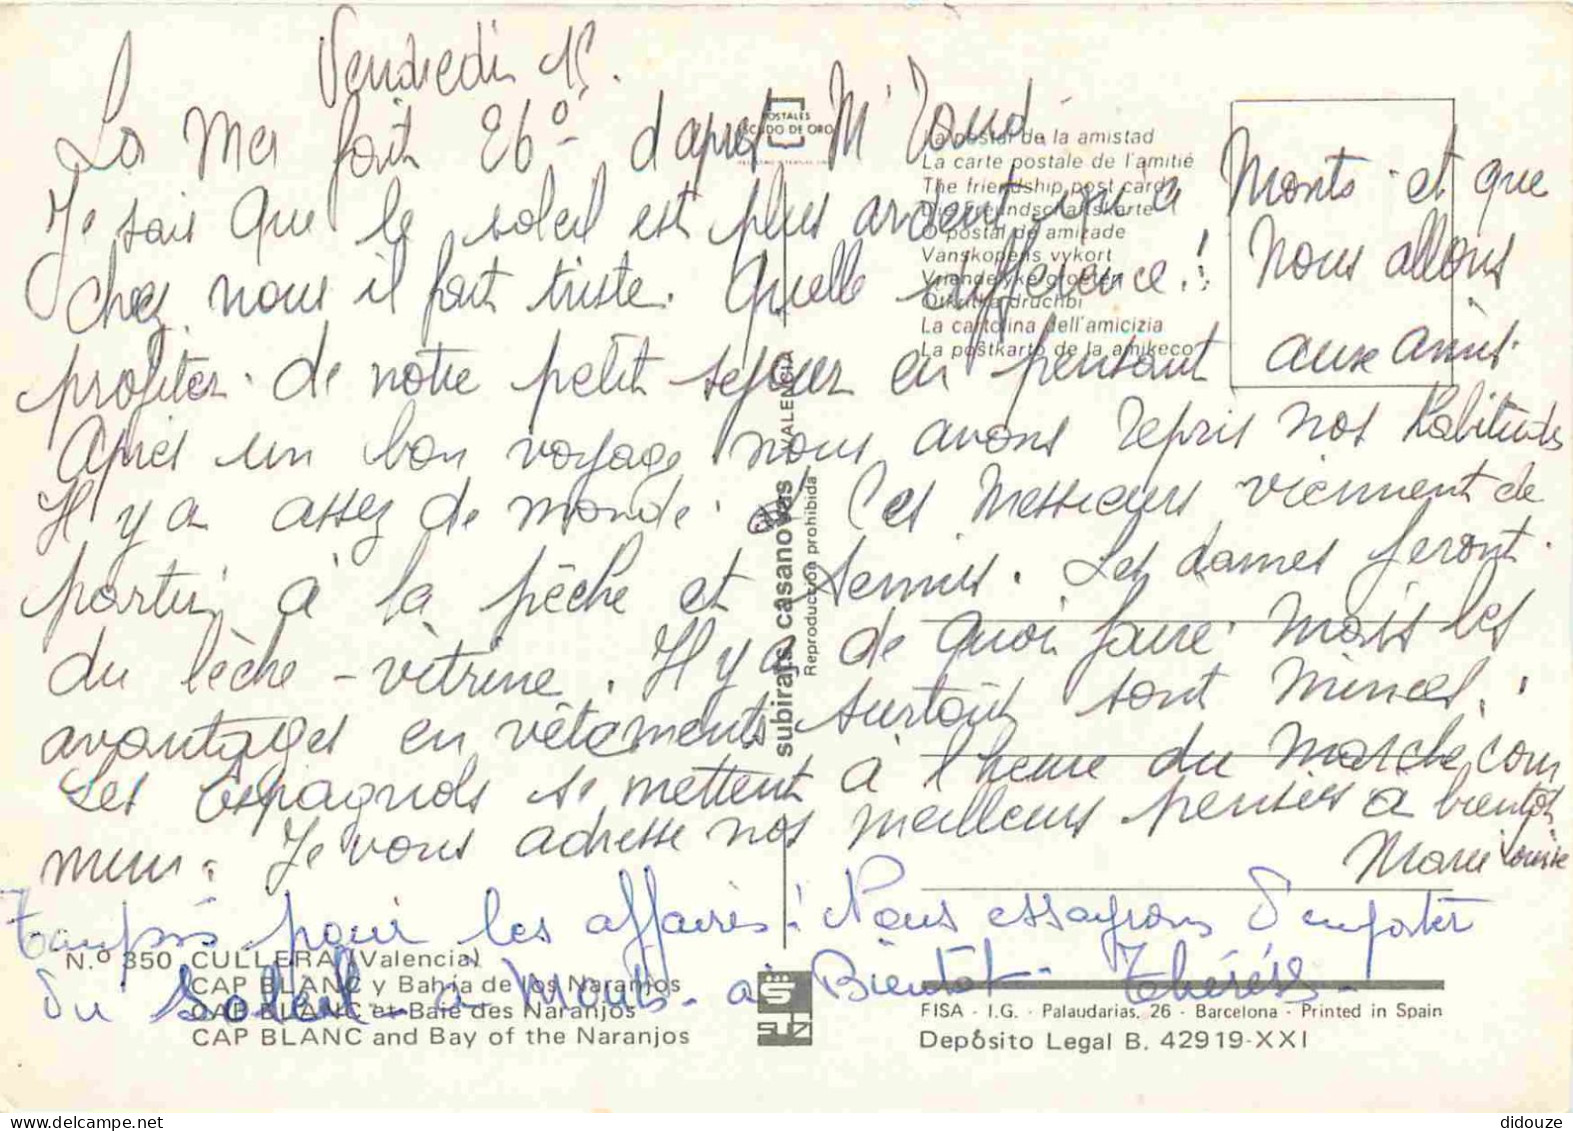 Vendredi 15.
La Mer fait 26° d'après Mr
Je sais que le soleil est plus ardent qu'à Monts et que
chez nous il fait triste. Quelle différence! Nous allons
profiter de notre petit séjour en pensant aux amis.
Après un bon voyage nous avons repris nos habitudes
Il y a assez de monde. Ces Messieurs viennent de
partir à la pêche et tennis. Les dames feront
du lèche-vitrine. Il y a de quoi faire mais les
avantages en vêtements surtout sont minces!
Les Espagnols se mettent à l'heure du Marché com
mun. Je vous adresse nos meilleures pensées à bientôt
Marie Louise
Tampis pour les affaires! Nous essayons d'emporter
du Soleil - à Monts - à Bientôt - Thérèse -
POSTALES
ESCUDO DE ORO
La postal de la amistad
La carte postale de l'amitié
The friendship post card
Die Freundschaftskarte
O postal de amizade
Vanskapens vykort
Vriendelyke groeten
Otkritka druchbi
La cartolina dell'amicizia
La poŝtkarto de la amikeco
subirats casanovas VALENCIA
Reproducción prohibida
N.º 350 CULLERA (Valencia)
CAP BLANC y Bahía de los Naranjos
CAP BLANC et Baie des Naranjos
CAP BLANC and Bay of the Naranjos
FISA - I.G. - Palaudarias, 26 - Barcelona - Printed in Spain
Depósito Legal B. 42919-XXI
didouze